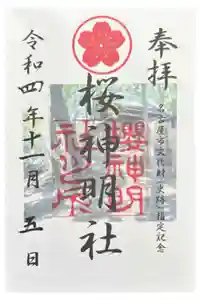 奉拝
名古屋市文化財(史跡)指定記念
桜神明社
櫻神明
社之印
令和四年十一月五日